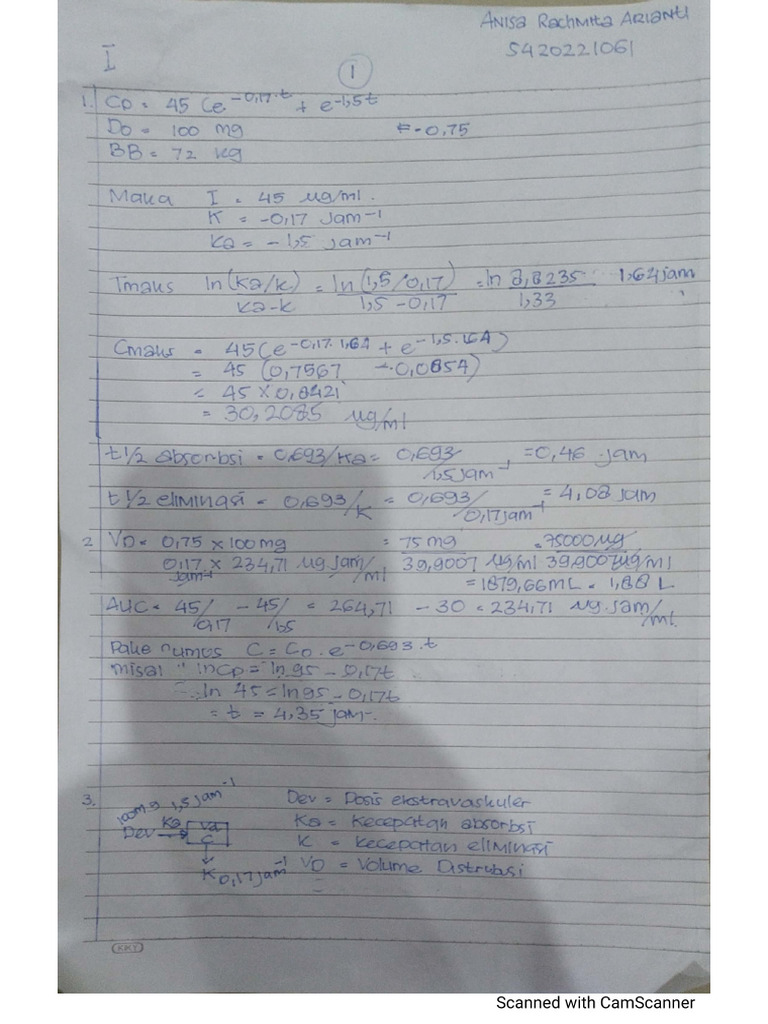 Anisa Rachmita Arianti
5420221061
I
1
1. CD = 45 (e^-0,17.t + e^-1,5t
Do = 100 mg F = 0,75
BB = 72 kg
Maka I = 45 µg/ml.
K = -0,17 jam^-1
Ka = -1,5 jam^-1
Tmaks ln(ka/k) / ka-k = ln(1,5/0,17) / 1,5-0,17 = ln 8,8235 / 1,33 1,64 jam
Cmaks = 45(e^-0,17.1,64 + e^-1,5.1,64)
= 45 (0,7567 - 0,0854)
= 45 x 0,8421
= 30,2085 µg/ml
t 1/2 absorbsi = 0,693/Ka = 0,693/1,5 jam^-1 = 0,46 jam
t 1/2 eliminasi = 0,693/K = 0,693/0,17 jam^-1 = 4,08 jam
2 VD = 0,75 x 100 mg = 75 mg = 75000 µg
0,17 jam^-1 x 234,71 µg jam/ml 39,9007 µg/ml 39,9007 µg/ml
= 1879,66 mL = 1,88 L
AUC = 45/0,17 - 45/1,5 = 264,71 - 30 = 234,71 µg.jam/ml
Pake rumus C = Co . e^-0,693.t
misal " ln CD = ln 95 - 0,17t
ln 45 = ln 95 - 0,17t
= t = 4,35 jam.
3.
100mg 1,5 jam^-1 Dev = Dosis ekstravaskuler
Dev Ka VD C Ka = Kecepatan absorbsi
K = Kecepatan eliminasi
K 0,17 jam^-1 VD = Volume Distribusi
KKY
Scanned with CamScanner